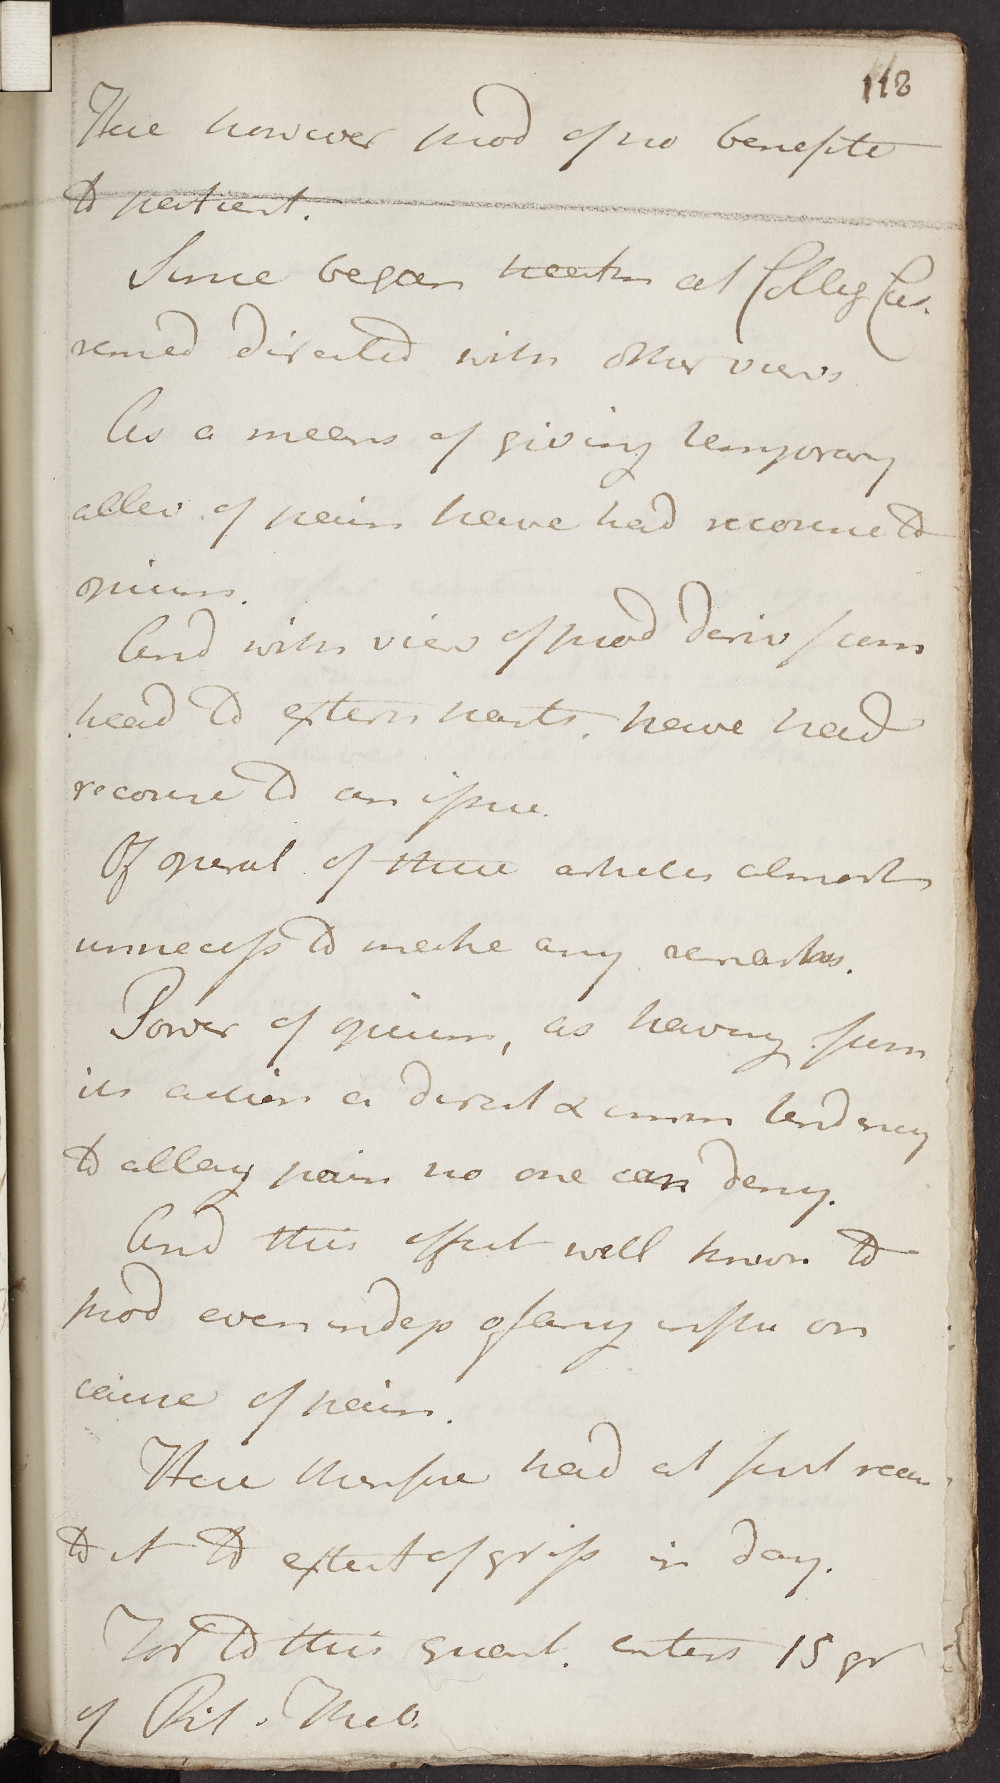 118
These however prod of no benefite
to patient.
Since began treatm at Colleg Cas.
remed directed with other views
As a means of giving temporary
allev. of pain have had recourse to
opium.
And with view of prod deriv from
head to extern parts, have had
recourse to an issue.
Of operat of these articles almost
unnecess to make any remarks.
Power of opium, as having from
its action a direct & imm tendency
to allay pain no one can deny.
And this effect well known to
prod even indep of any influ on
cause of pain.
Have therefore had at first recou
to it to extent of gr iss in day.
For to this quant. enters 15 gr
of Pil. Theb.